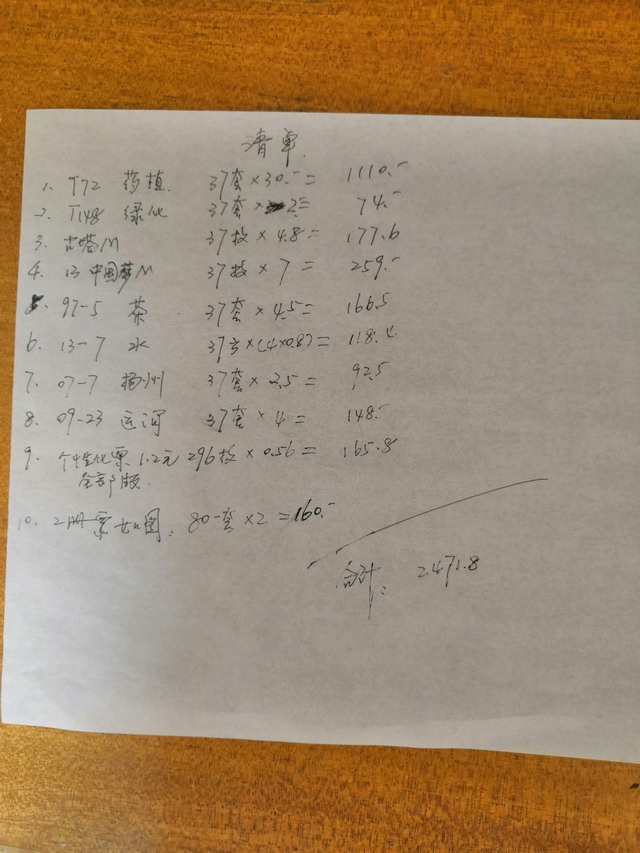 清单.
1. T72 药植. 37套×30.-= 1110.-
2. T148 绿化 37套×2= 74.-
3. 古塔M 37枚×4.8= 177.6
4. 13中国梦M 37枚×7= 259.-
5. 97-5 茶. 37套×4.5= 166.5
6. 13-7 水 37方×(4×0.8)= 118.4
7. 07-7 扬州 37套×2.5= 92.5
8. 09-23 运河 37套×4= 148.-
9. 个性化票 1.2元 296枚×0.56= 165.8
全部版.
10. 2册票如图: 80套×2=160.-
合计: 2471.8